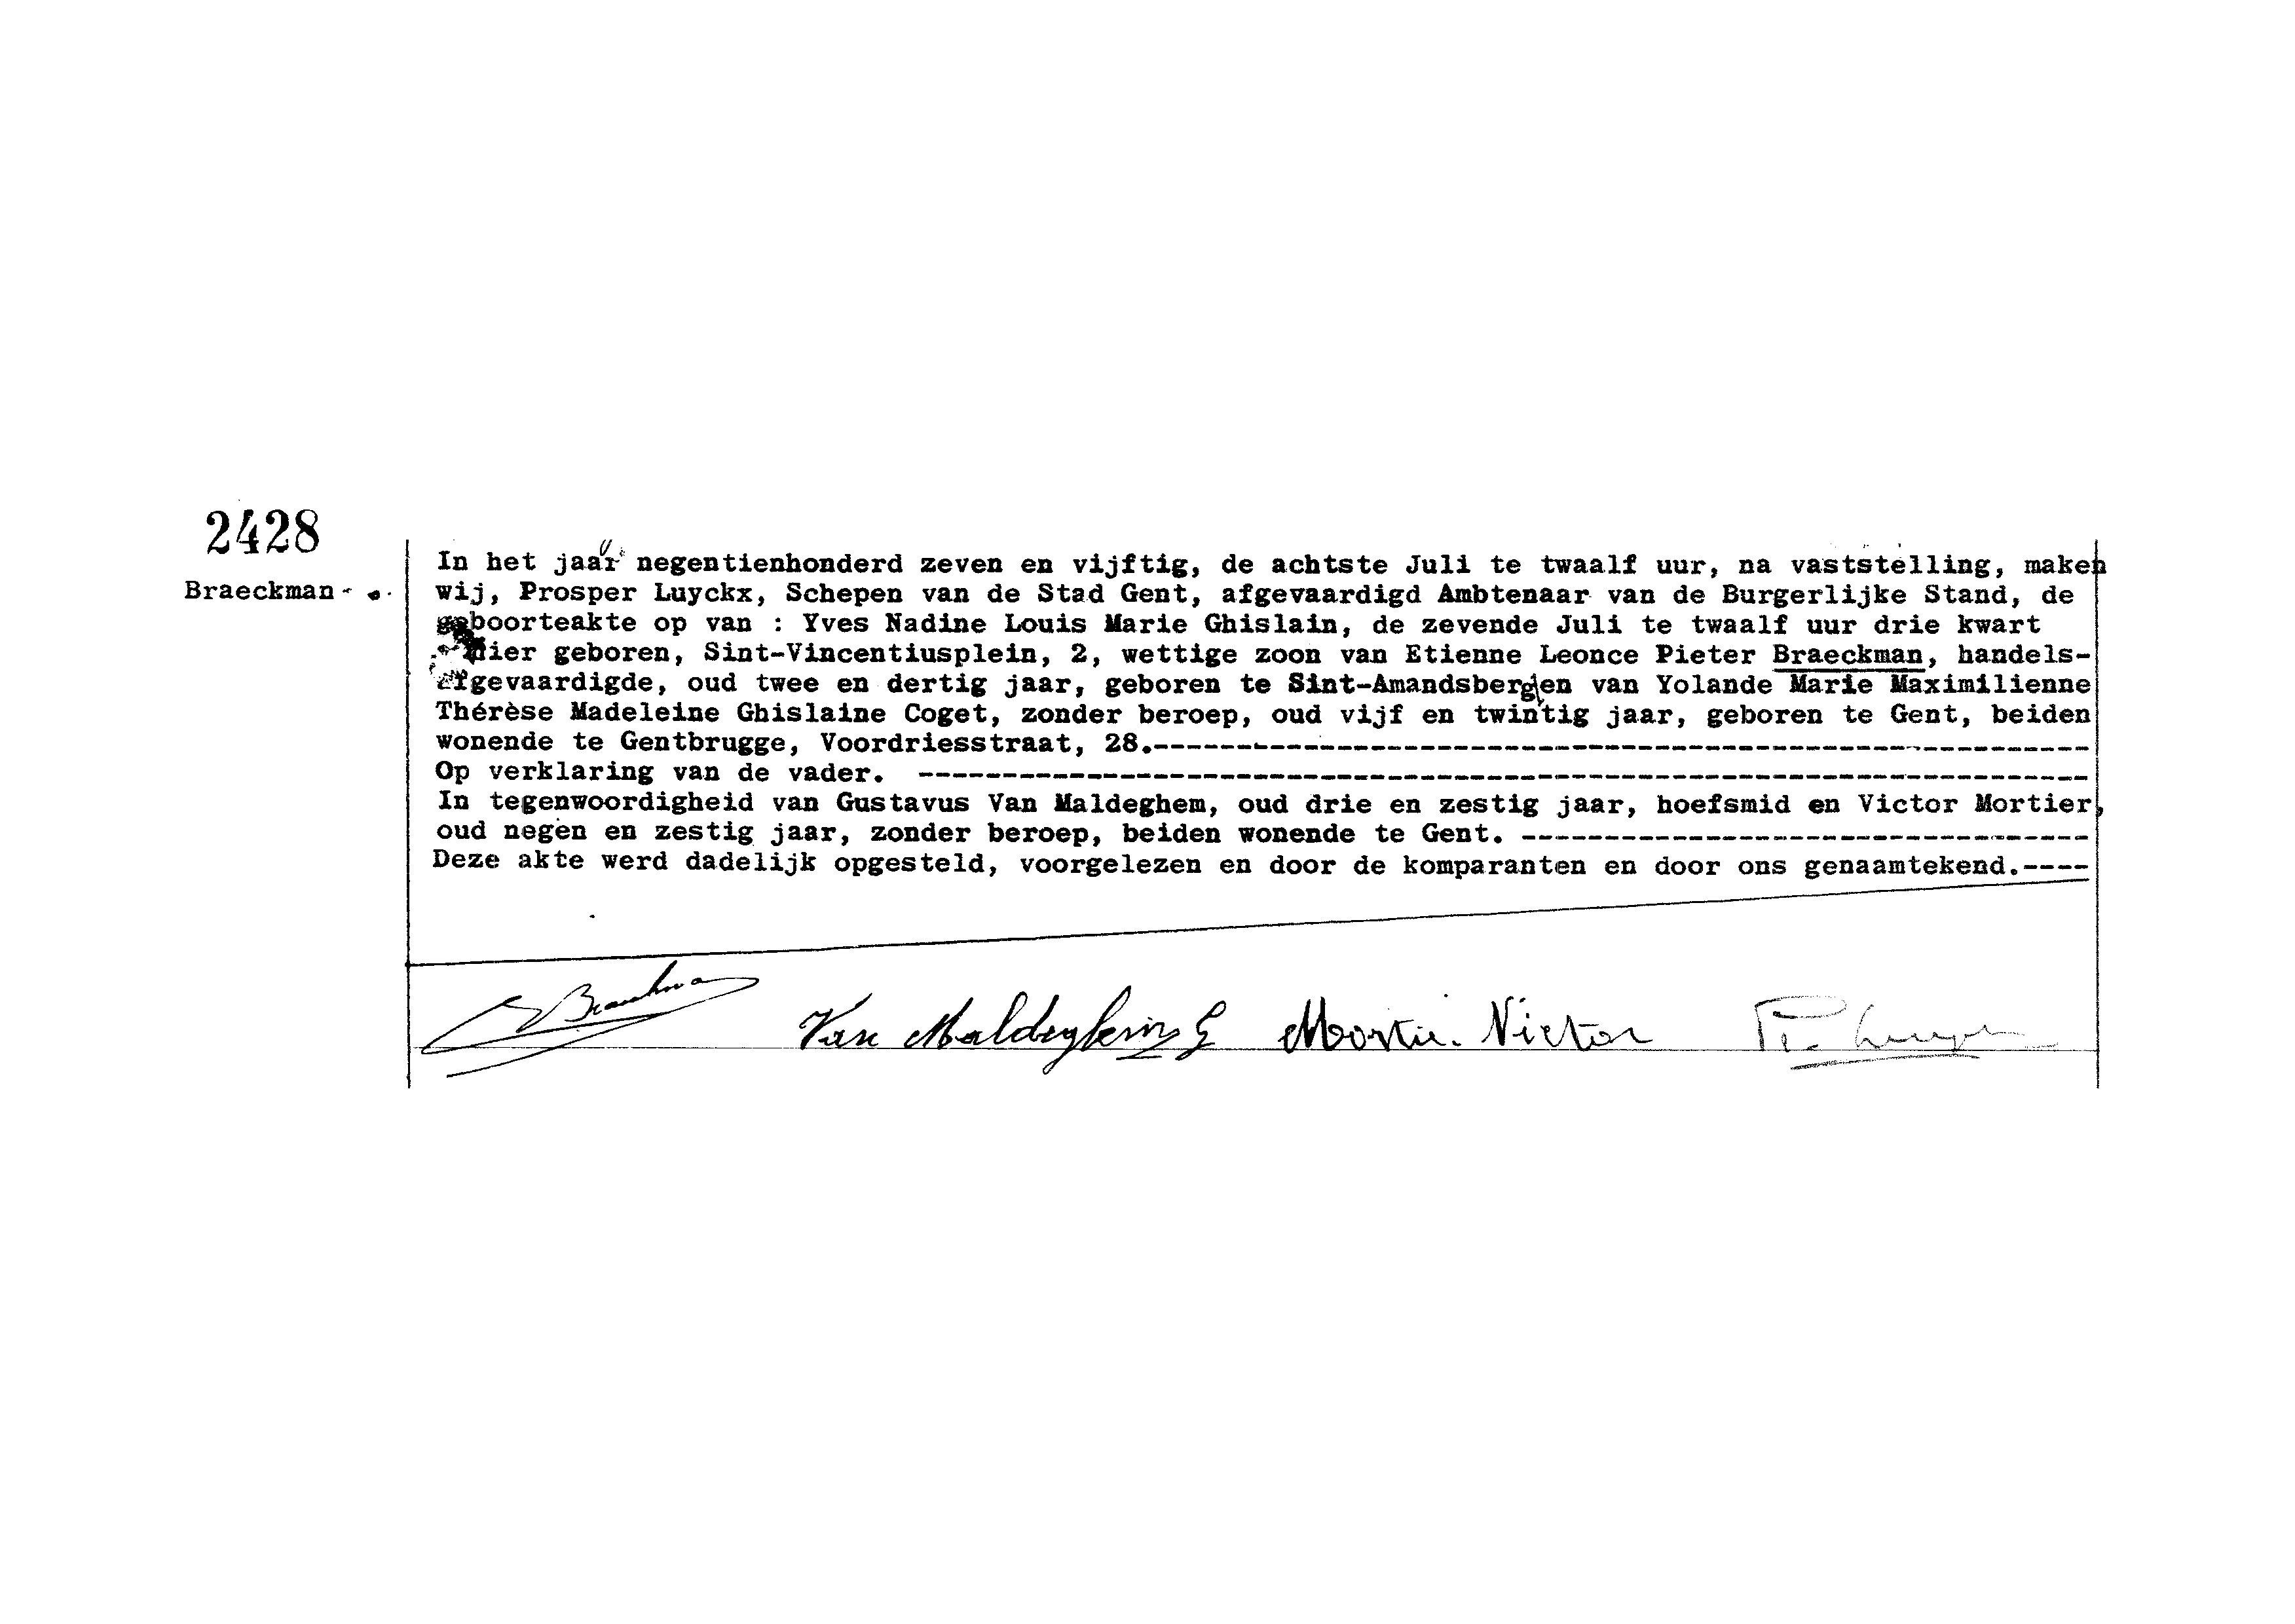 2428
Braeckman - .
In het jaar negentienhonderd zeven en vijftig, de achtste Juli te twaalf uur, na vaststelling, maken
wij, Prosper Luyckx, Schepen van de Stad Gent, afgevaardigd Ambtenaar van de Burgerlijke Stand, de
geboorteakte op van : Yves Nadine Louis Marie Ghislain, de zevende Juli te twaalf uur drie kwart
hier geboren, Sint-Vincentiusplein, 2, wettige zoon van Etienne Leonce Pieter Braeckman, handels-
afgevaardigde, oud twee en dertig jaar, geboren te Sint-Amandsberg en van Yolande Marie Maximilienne
Thérèse Madeleine Ghislaine Coget, zonder beroep, oud vijf en twintig jaar, geboren te Gent, beiden
wonende te Gentbrugge, Voordriesstraat, 28.----------
Op verklaring van de vader. ----------
In tegenwoordigheid van Gustavus Van Maldeghem, oud drie en zestig jaar, hoefsmid en Victor Mortier,
oud negen en zestig jaar, zonder beroep, beiden wonende te Gent. ----------
Deze akte werd dadelijk opgesteld, voorgelezen en door de komparanten en door ons genaamtekend.----
Braeckman Van Maldeghem G Mortier Victor